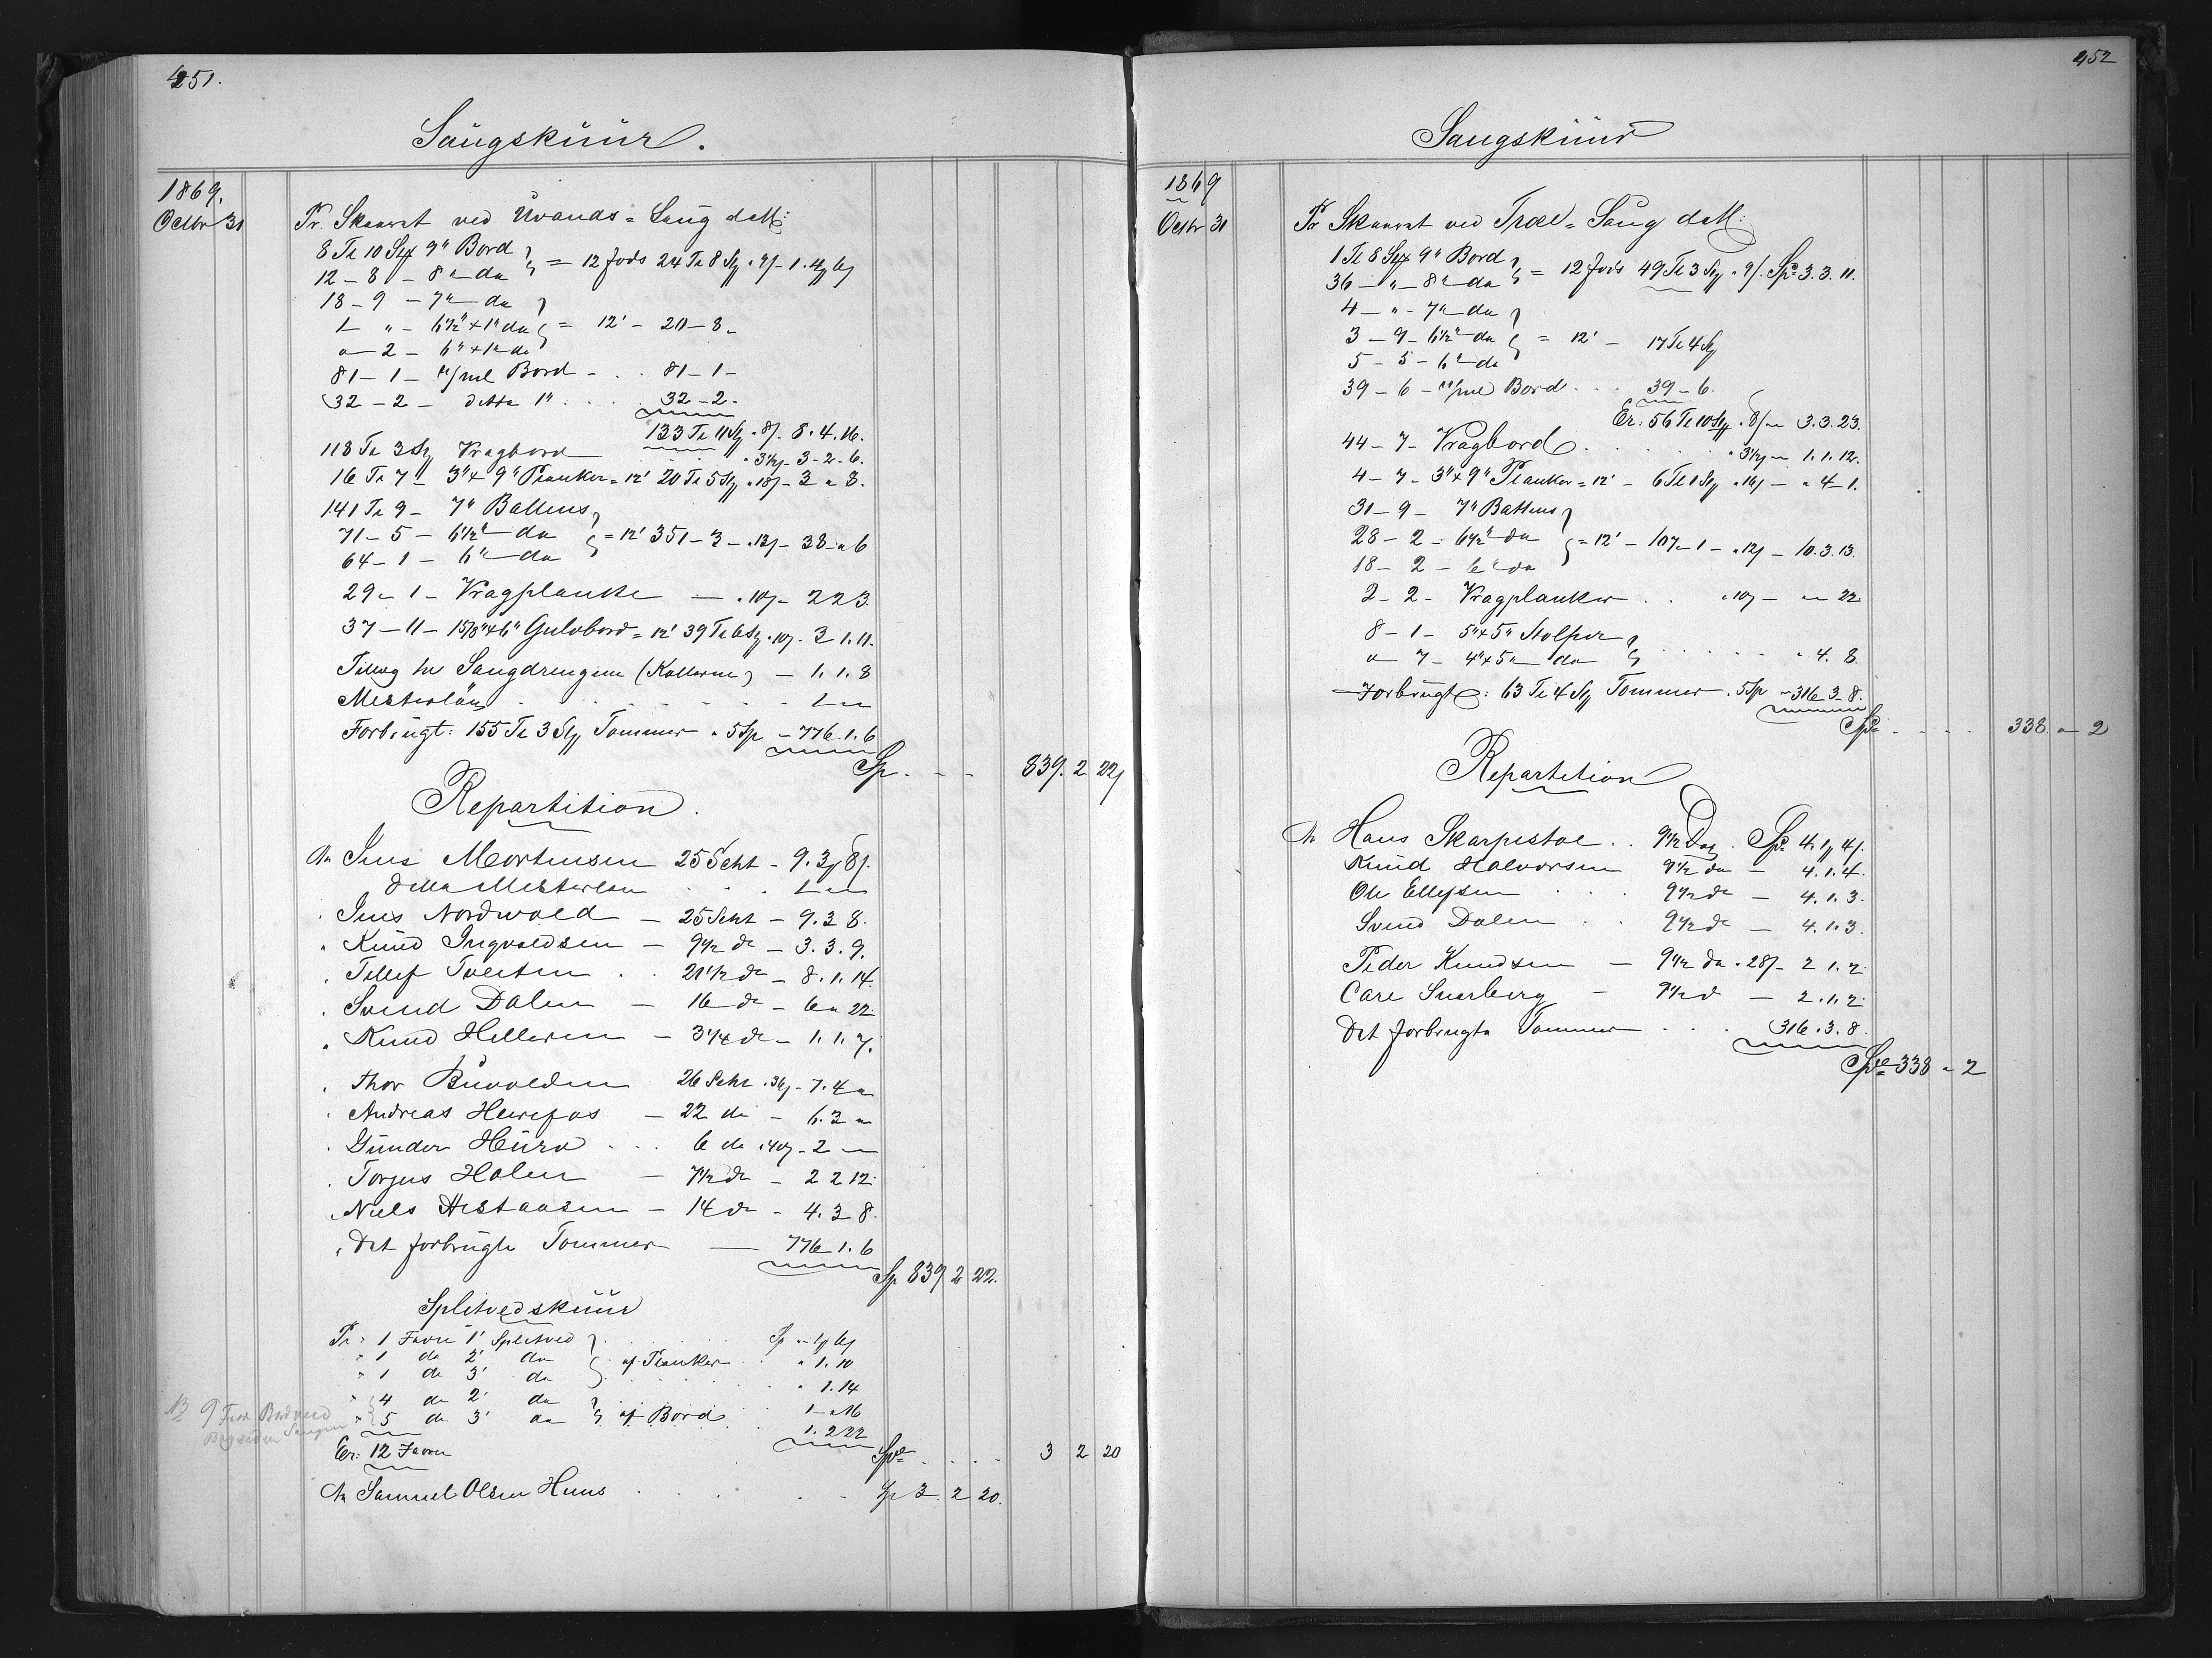 451.
Saugskuur.
1869.
Octbr 31 Pr. Skaaret ved Uvands=Saug dM:
8 Te 10 Sty 9" Bord
12 - 8 - 8" - do } = 12 fods 24 Te 8 Sty " 9/ - 1. 4 6
18 - 9 - 7" - do
1 " - 6½" x 1" do } = 12' - 20 - 8 -
" - 2 - 6" x 1" do
81 - 1 - Bord - . . 81 - 1 -
32 - 2 - ditto 1" . . . . 32 - 2 -
133 Te 11 Sty " 8/. 8. 4. 16.
118 Te 3 Sty Vragbord " 3½ - 3 - 2 - 6.
16 Te 7 - 3" x 9" Planker = 12' 20 Te 5 Sty " 18/ - 3 " 8.
141 Te 9 - 7" Battens
71 - 5 - 6½" do } = 12' 351 - 3 - " 13/ - 38 - " 6
64 - 1 - 6" - do
29 - 1 - Vragplanke — " 10/ - 2 2 3.
37 - 11 - 15/8" x 6" Gulvbord = 12' 39 Te 6 Sty " 10/ - 3 1. 11.
Tillæg for Saugdrengene (Kallerne) — 1. 1. 8
Mesterløn . . . . . . 1 - "
Forbrugt: 155 Te 3 Sty Tommer " 5 Sp - 776. 1. 6
Sp . - - 839. 2 22
Repartition.
An Jens Mortensen 25 Scht - 9. 3 8/.
Ditto Mesterløn . . . 1 - "
" Jens Nordvold — 25 Scht - 9. 3 8.
" Knud Ingvaldsen — 9½ do - 3. 3. 9.
" Tellef Tveiten . . 21½ do - 8. 1. 14.
" Svend Dalen — 16 do - 6 " 22.
" Knud Helleren — 3¼ do - 1. 1. 7.
" Thor Buvolden 26 Scht " 36/ - 7. 4 "
" Andreas Heirefos — 22 do - 6. 3 "
" Gunder Heure . . . 6 do " 40/ - 2 - "
" Torjus Holen — 7½ do - 2 2 12.
" Niels Aistansen — 14 do - 4. 3 8.
" Det forbrugte Tommer — 776 1. 6
Sp 839 2 22.
Splitvedskuur
Pr: 1 Favn 1' Splitved . . . . Sp " 1 6
" 1 do 2' do } af Planker . " 1. 10
" 1 do 3' do . . . " 1. 14
" 4 do 2' do
" 5 do 3' do } af Bord . 1 - " 16
1. 2 22
NB 9 Favn Bordved
Er: 12 Favne Spd . . . . 3 2 20
An Samuel Olsen Huus . . . . Sp 3. 2 20.
452
Saugskuur
1869
Octbr 31 Pr Skaaret ved Træl=Saug dM:
1 Te 8 Sty 9" Bord
36 - " - 8" - do } = 12 fods 49 Te 3 Sty " 9/. Spd 3. 3. 11.
4 - " - 7" - do
3 - 9 - 6½" - do } = 12' - 17 Te 4 Sty
5 - 5 - 6" - do
39 - 6 - Bord . . . 39 - 6.
Er: 56 Te 10 Sty " 8/ - 3. 3. 23.
44 - 7 - Vragbord . . . . " 3½ - 1. 1. 12.
4 - 7 - 3" x 9" Planker = 12' - 6 Te 1 Sty " 16/ - " 4 - 1.
31 - 9 - 7" Battens
28 - 2 - 6½" do } = 12' - 107 - 1 - " 12/ - 10. 3. 13.
18 - 2 - 6" do
2 - 2 - Vragplanker . . " 10/ - " - 22.
8 - 1 - 5" x 5" Stolper
" - 7 - 4" x 5" - do } . . . . . " 4. 8.
Forbrugt: 63 Te 4 Sty Tommer . 5 Sp - 316 3 - 8.
Spd . . . . 338 " - 2
Repartition
An Hans Skarpestol . . 9½ Dag . Spd 4. 1 4/.
Knud Halvorsen 9½ do - 4. 1. 4.
Ole Ellefsen . . 9½ do - 4. 1. 3.
Svend Dalen . . 9½ do - 4. 1. 3.
Peder Knudsen — 9½ do " 28/ - 2 1. 2.
Carl Snarberg — 9½ d - 2. 1. 2.
Det forbrugte Tommer . . . 316. 3. 8.
Spd 338 " 2